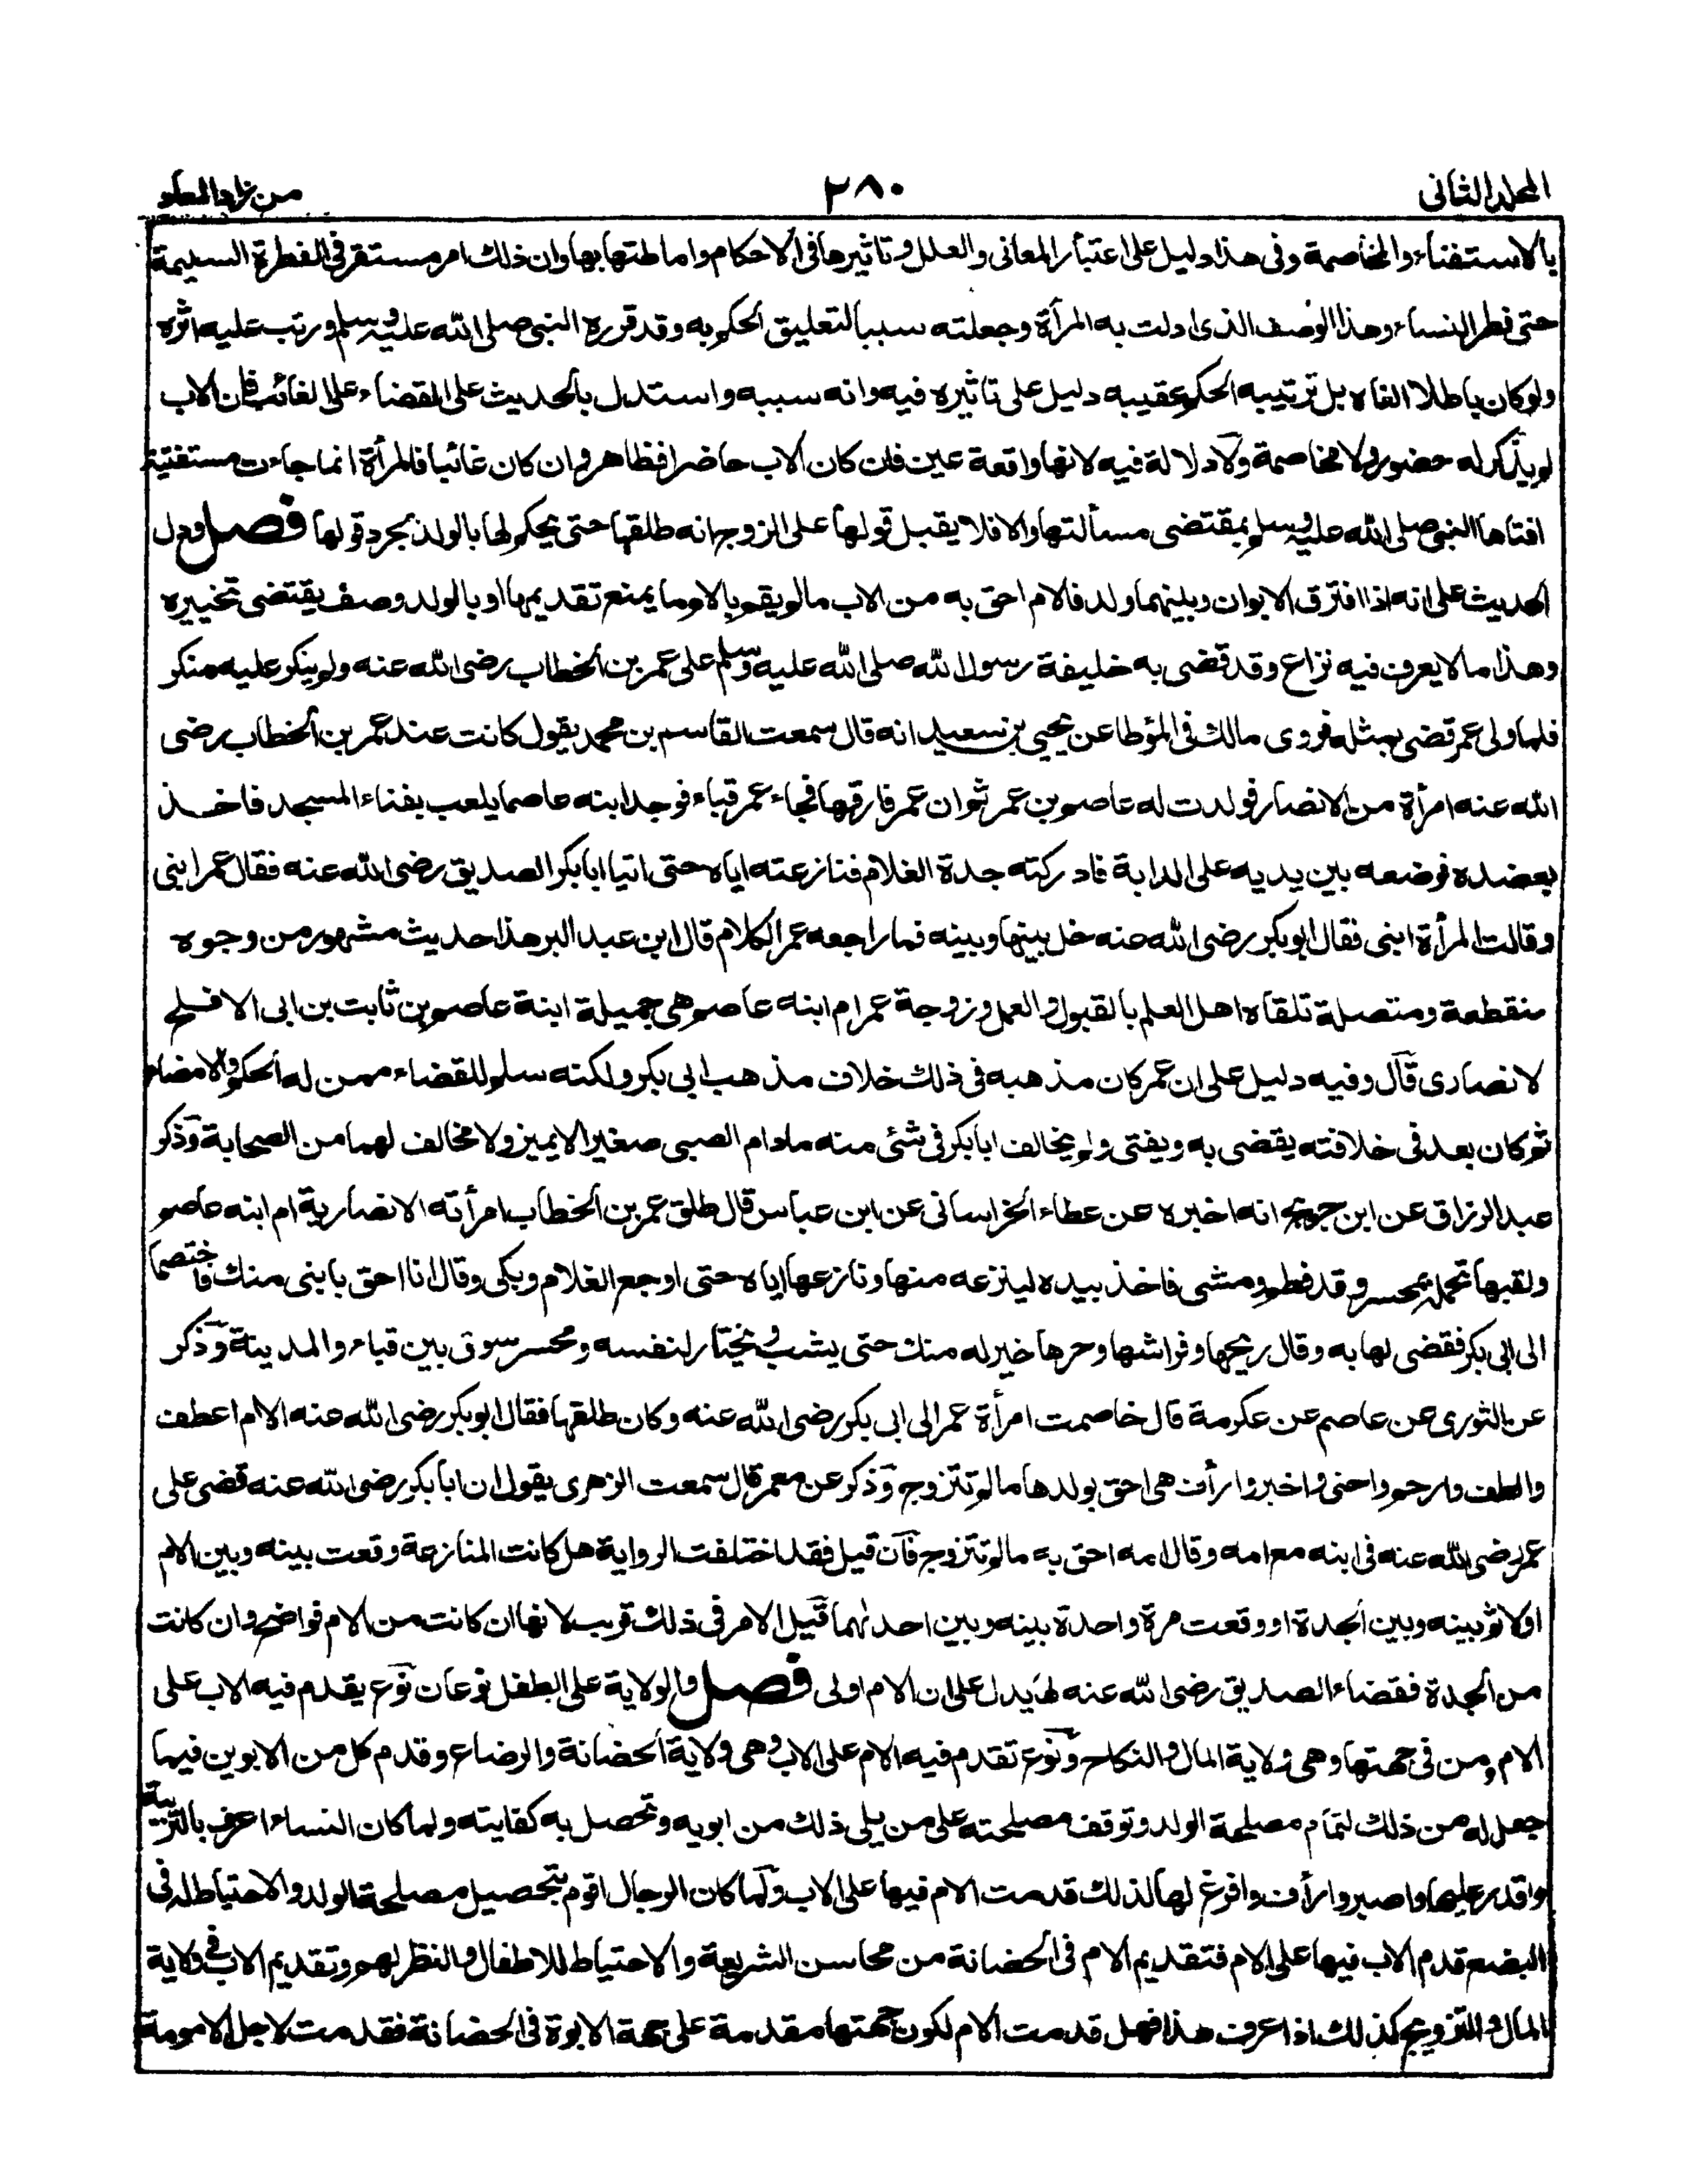 المجلد الثانی
٢٨٠
من زاد المعاد
بالاستفتاء والمخاصمة وفی هذا دلیل علی اعتبار المعانی والعلل وتاثیرها فی الاحکام واماطتها بها وان ذلك امر مستقر فی الفطرة السلیمة
حتی فطر النساء وهذا الوصف الذی ادلت به المرأة وجعلته سببا لتعلیق الحکم به وقد قرره النبی صلی الله علیه وسلم ورتب علیه اثره
ولو کان باطلا الغاه بل ترتیبه الحکم عقیبه دلیل علی تاثیره فیه وانه سببه واستدل بالحدیث علی القضاء علی الغائب فان الاب
لم یذکر له حضور ولا مخاصمة ولا دلالة فیه لانها واقعة عین فان کان الاب حاضرا فظاهر وان کان غائبا فالمرأة انما جاءت مستفتیة
افتاها النبی صلی الله علیه وسلم بمقتضی مسألتها والا فلا یقبل قولها علی الزوج انه طلقها حتی یحکم لها بالولد بمجرد قولها فصل ودل
الحدیث علی انه اذا افترق الابوان وبینهما ولد فالام احق به من الاب مالم یقم بالام ما یمنع تقدیمها او بالولد وصف یقتضی تخییره
وهذا ما لا یعرف فیه نزاع وقد قضی به خلیفة رسول الله صلی الله علیه وسلم علی عمر بن الخطاب رضی الله عنه ولم ینکر علیه منکر
فلما ولی عمر قضی بمثله فروی مالك فی المؤطا عن یحیی بن سعید انه قال سمعت القاسم بن محمد یقول کانت عند عمر بن الخطاب رضی
الله عنه امرأة من الانصار فولدت له عاصم بن عمر ثم ان عمر فارقها فجاء عمر قباء فوجد ابنه عاصما یلعب بفناء المسجد فاخذ
بعضده فوضعه بین یدیه علی الدابة فادرکته جدة الغلام فنازعته ایاه حتی اتیا ابا بکر الصدیق رضی الله عنه فقال عمر ابنی
وقالت المرأة ابنی فقال ابو بکر رضی الله عنه خل بینها وبینه فما راجعه عمر الکلام قال ابن عبد البر هذا حدیث مشهور من وجوه
منقطعة ومتصلة تلقاه اهل العلم بالقبول والعمل وزوجة عمر ام ابنه عاصم هی جمیلة ابنة عاصم بن ثابت بن ابی الافلح
لانصاری قال وفیه دلیل علی ان عمر کان مذهبه فی ذلك خلاف مذهب ابی بکر ولکنه سلم للقضاء ممن له الحکم والامضاء
ثم کان بعد فی خلافته یقضی به ویفتی ولم یخالف ابا بکر فی شئ منه مادام الصبی صغیرا لا یمیز ولا مخالف لهما من الصحابة وذکر
عبد الرزاق عن ابن جریج انه اخبره عن عطاء الخراسانی عن ابن عباس قال طلق عمر بن الخطاب امرأته الانصاریة ام ابنه عاصم
ولقیها تحمله بمحسر وقد فطم ومشی فاخذ بیده لینزعه منها ونازعها ایاه حتی اوجع الغلام وبکی وقال انا احق بابنی منك فاختصما
الی ابی بکر فقضی لها به وقال ریحها وفراشها وحرها خیر له منك حتی یشب ویختار لنفسه ومحسر سوق بین قباء والمدینة وذکر
عن الثوری عن عاصم عن عکرمة قال خاصمت امرأة عمر الی ابی بکر رضی الله عنه وکان طلقها فقال ابو بکر رضی الله عنه الام اعطف
والطف وارحم واحنی واخیر وارأف هی احق بولدها مالم تتزوج وذکر عن معمر قال سمعت الزهری یقول ان ابا بکر رضی الله عنه قضی علی
عمر رضی الله عنه فی ابنه مع امه وقال امه احق به مالم تتزوج فان قیل فقد اختلفت الروایة هل کانت المنازعة وقعت بینه وبین الام
اولا ثم بینه وبین الجدة او وقعت مرة واحدة بینه وبین احدٰهما قیل الامر فی ذلك قریب لانها ان کانت من الام فواضح وان کانت
من الجدة فقضاء الصدیق رضی الله عنه لها یدل علی ان الام اولی فصل والولایة علی الطفل نوعان نوع یقدم فیه الاب علی
الام ومن فی جهتها وهی ولایة المال والنکاح ونوع تقدم فیه الام علی الاب وهی ولایة الحضانة والرضاع وقدم کل من الابوین فیما
جعل له من ذلك لتمام مصلحة الولد وتوقف مصلحته علی من یلی ذلك من ابویه وتحصل به کفایته ولما کان النساء اعرف بالتربیة
واقدر علیها واصبر وارأف وافرغ لها لذلك قدمت الام فیها علی الاب ولما کان الرجال اقوم بتحصیل مصلحة الولد والاحتیاط له فی
البضع قدم الاب فیها علی الام فتقدیم الام فی الحضانة من محاسن الشریعة والاحتیاط للاطفال والنظر لهم وتقدیم الاب فی ولایة
المال والتزویج کذلك اذا عرف هذا فهل قدمت الام لکون جهتها مقدمة علی جهة الابوة فی الحضانة فقدمت لاجل الامومة